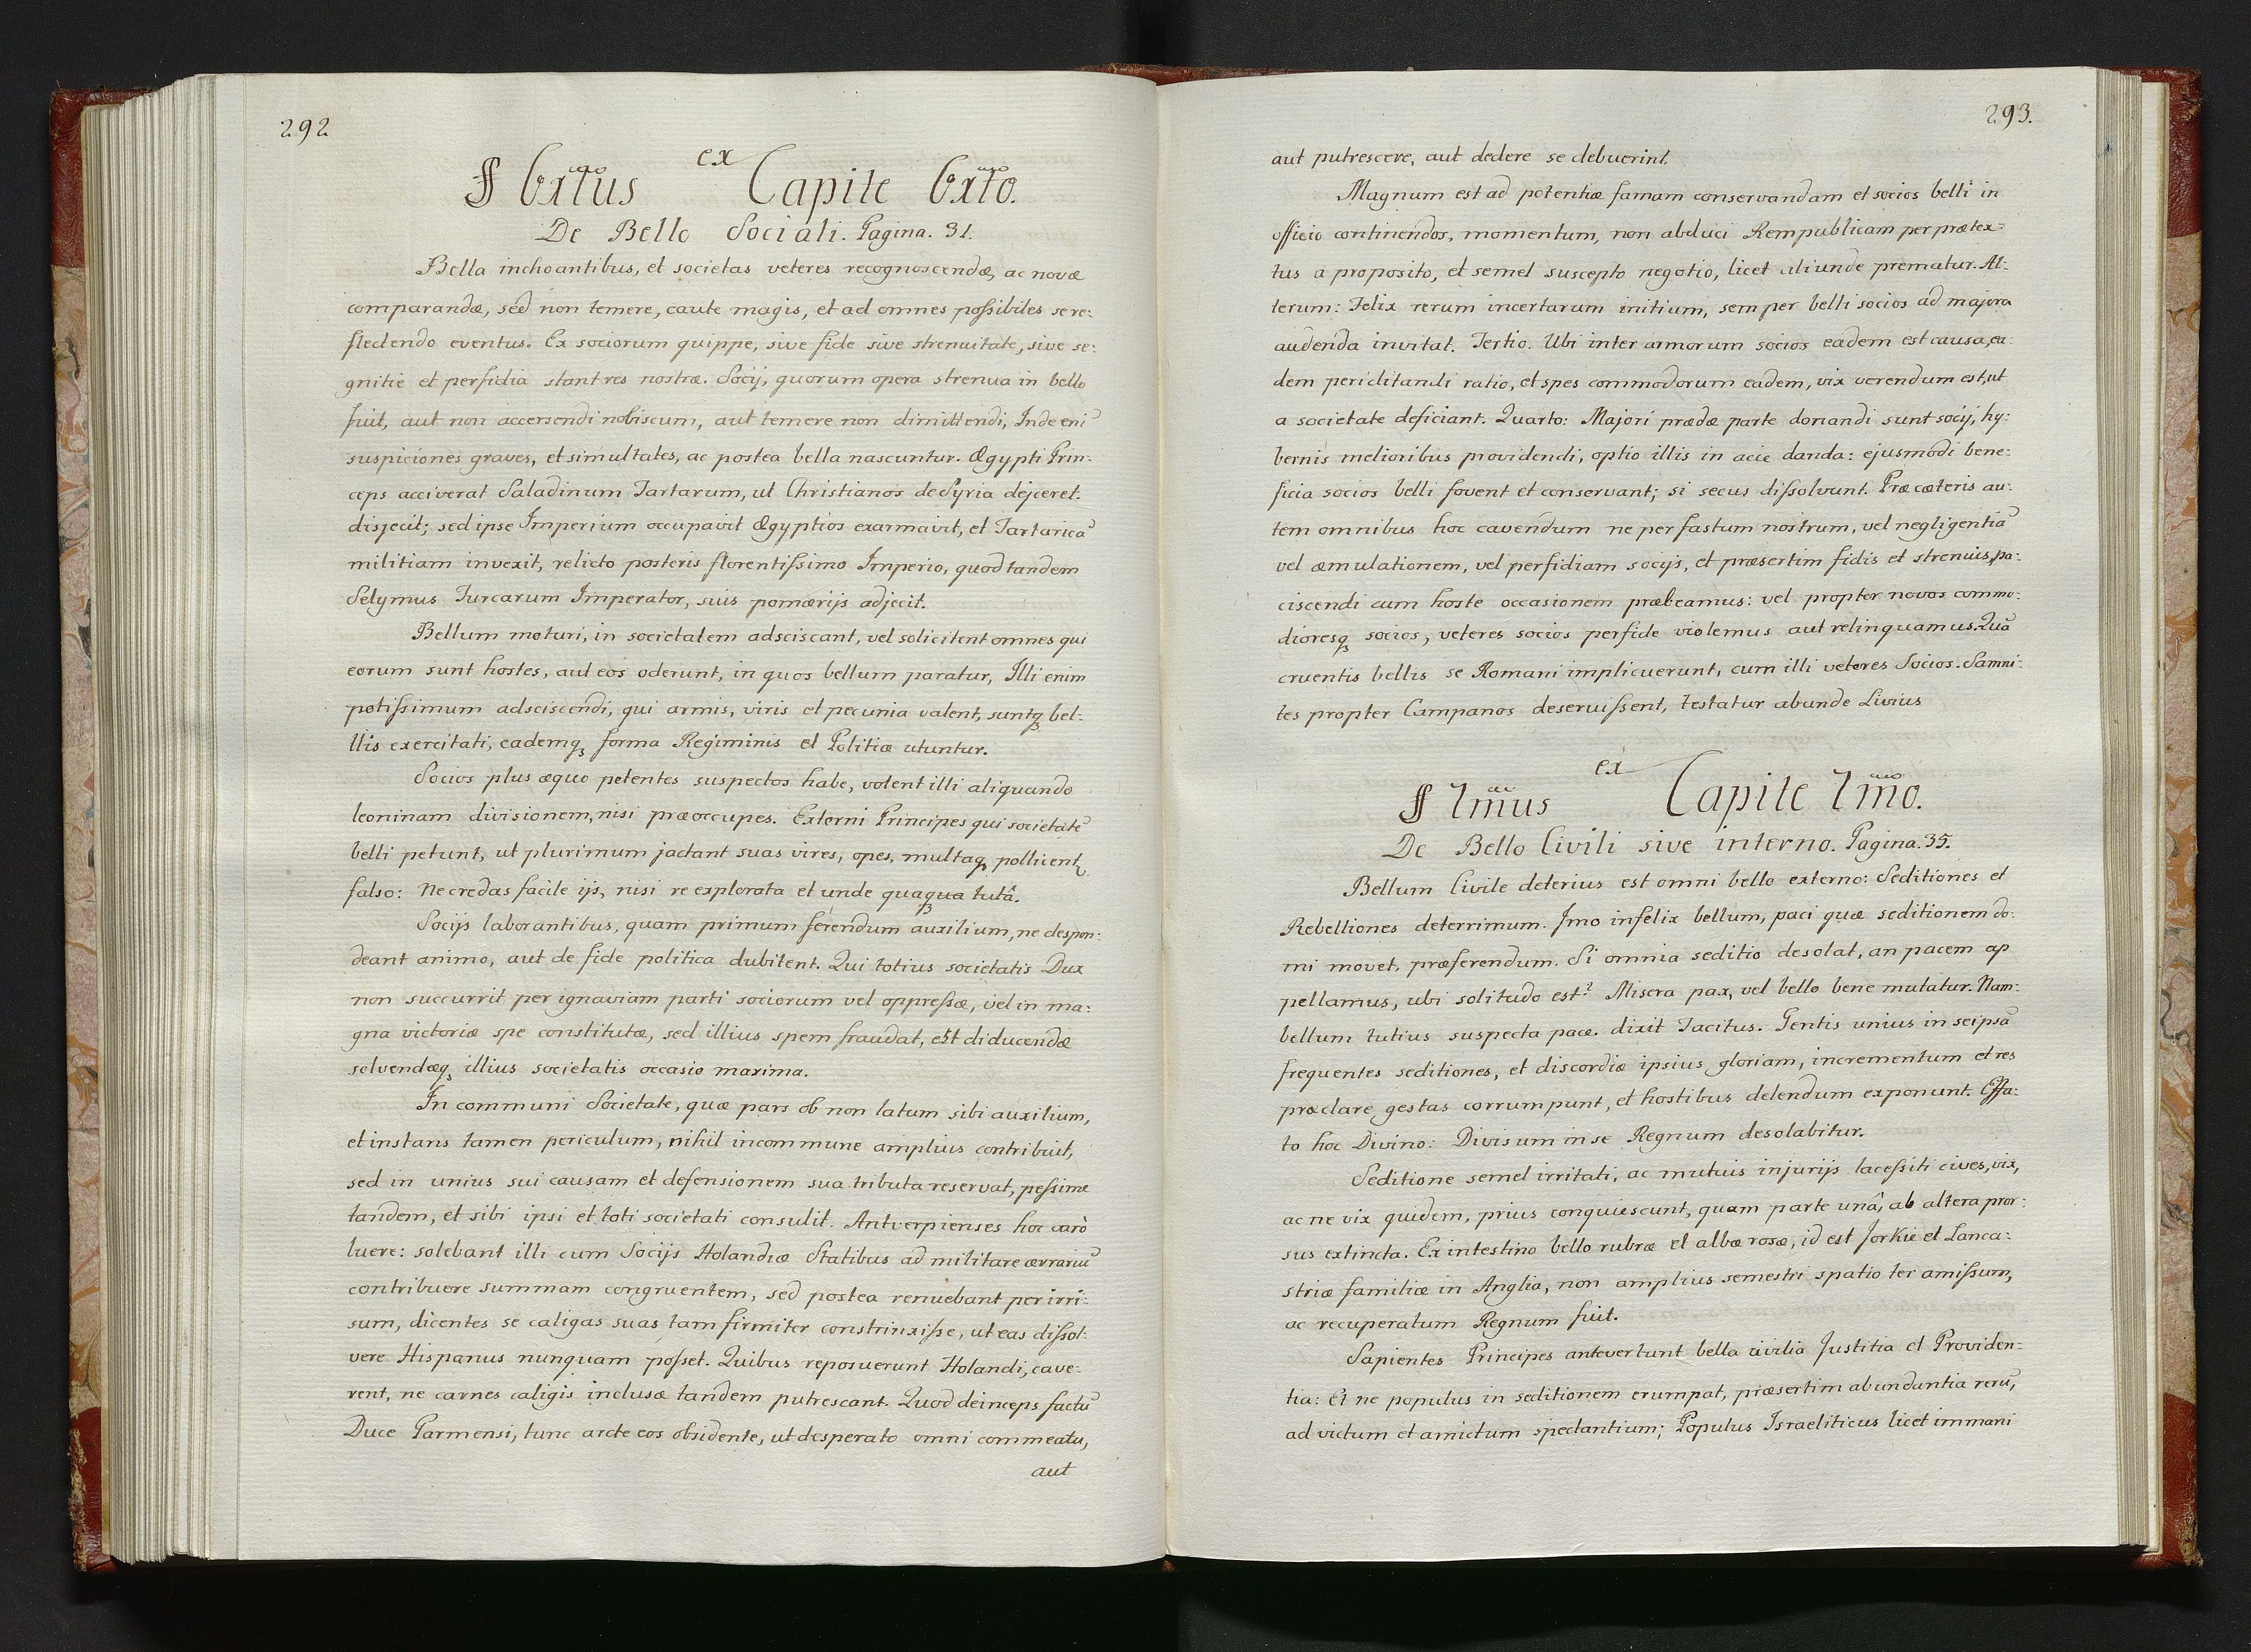 292
§ 6xtus ex Capite 6xto.
De Bello Sociali. Pagina. 31.
Bella inchoantibus, et societas veteres recognoscendæ, ac novæ
comparandæ, sed non temere, caute magis, et ad omnes possibiles se re:
flectendo eventus. Ex sociorum quippe, sive fide sive strenuitate, sive se:
gnitie et perfidia stant res nostræ. Socij, quorum opera strenua in bello
fuit, aut non accersendi nobiscum, aut temere non dimittendi, Inde enĩ
suspiciones graves, et simultates, ac postea bella nascuntur. Ægypti Prin:
ceps acciverat Saladinum Tartarum, ut Christianos de Syria dejceret.
disjecit; sed ipse Imperium occupavit Ægyptios exarmavit, et Tartaricã
militiam invexit, relicto posteris florentissimo Imperio, quod tandem
Selymus Turcarum Imperator, suis pomærijs adjecit.
Bellum moturi, in societatem adsciscant, vel solicitent omnes qui
eorum sunt hostes, aut eos oderunt, in quos bellum paratur, Illi enim
potissimum adsciscendi, qui armis, viris et pecunia valent, suntq3 bel:
llis exercitati, eademq3 forma Regiminis et Politiæ utuntur.
Socios plus æquo petentes suspectos habe, volent illi aliquando
leoninam divisionem, nisi præoccupes. Externi Principes qui societatẽ
belli petunt, ut plurimum jactant suas vires, opes, multaq3 pollicent
falso: Ne credas facile ijs, nisi re explorata et unde quaqua tutâ.
Socijs laborantibus, quam primum ferendum auxilium, ne despon:
deant animo, aut de fide politica dubitent. Qui totius societatis Dux
non succurrit per ignaviam parti sociorum vel oppressæ, vel in ma:
gna victoriæ spe constitutæ, sed illius spem fraudat, est diducendæ
solvendæq3 illius societatis occasio maxima.
In communi Societate, quæ pars ob non latum sibi auxilium,
et instans tamen periculum, nihil incommune amplius contribuit,
sed in unius sui causam et defensionem sua tributa reservat, pessime
tandem, et sibi ipsi et toti societati consulit. Antverpienses hoc carò
luere: solebant illi cum Socijs Holandiæ Statibus ad militare ærrariũ
contribuere summam congruentem, sed postea renuebant per irri:
sum, dicentes se caligas suas tam firmiter constrinxisse, ut eas dissol:
vere Hispanus nunquam posset. Quibus reposuerunt Holandi, cave:
rent, ne carnes caligis inclusæ tandem putrescant. Quod deinceps factũ
Duce Parmensi, tunc arcte eos obsidente, ut desperato omni commeatu,
aut
293.
aut putrescere, aut dedere se debuerint.
Magnum est ad potentiæ famam conservandam et socios belli in
officio continendos, momentum, non abduci Rempublicam per prætex:
tus a proposito, et semel suscepto negotio, licet aliunde prematur. Al:
terum: Felix rerum incertarum initium, semper belli socios ad majora
audenda invitat. Tertio. Ubi inter armorum socios eadem est causa, ea:
dem periclitandi ratio, et spes commodorum eadem, vix verendum est, ut
a societate deficiant. Quarto: Majori prædæ parte donandi sunt socij, hy:
bernis melioribus providendi, optio illis in acie danda: ejusmodi bene:
ficia socios belli fovent et conservant; si secus dissolvunt. Præ cæteris au:
tem omnibus hoc cavendum ne per fastum nostrum, vel negligentiã
vel æmulationem, vel perfidiam socijs, et præsertim fidis et strenuis, pa:
ciscendi cum hoste occasionem præbeamus: vel propter novos commo:
dioresq3 socios, veteres socios perfide violemus aut relinquamus. Quã
cruentis bellis se Romani implicuerunt, cum illi veteres Socios. Samni:
tes propter Campanos deseruissent, testatur abunde Livius
§ 7mus ex Capite 7mo.
De Bello Civili sive interno. Pagina. 35.
Bellum Civile deterius est omni bello externo: Seditiones et
Rebelliones deterrimum. Imo infelix bellum, paci quæ seditionem do:
mi movet, præferendum. Si omnia seditio desolat, an pacem ap
pellamus, ubi solitudo est? Misera pax, vel bello bene mutatur. Nam:
bellum tutius suspecta pace. dixit Tacitus. Gentis unius in seipsã
frequentes seditiones, et discordiæ ipsius gloriam, incrementum et res
præclare gestas corrumpunt, et hostibus delendum exponunt. Effa:
to hoc Divino: Divisum in se Regnum desolabitur.
Seditione semel irritati, ac mutuis injurijs lacessiti cives, vix,
ac ne vix quidem, prius conquiescunt, quam parte unâ, ab altera pror:
sus extincta. Ex intestino bello rubræ et albæ rosæ, id est Jorkiē et Lanca:
striæ familiæ in Anglia, non amplius semestri spatio ter amissum,
ac recuperatum Regnum fuit.
Sapientes Principes antevertunt bella civilia Justitia et Providen:
tia: Et ne populus in seditionem erumpat, præsertim abundantia rerũ,
ad victum et amictum spectantium; Populus Israeliticus licet immani